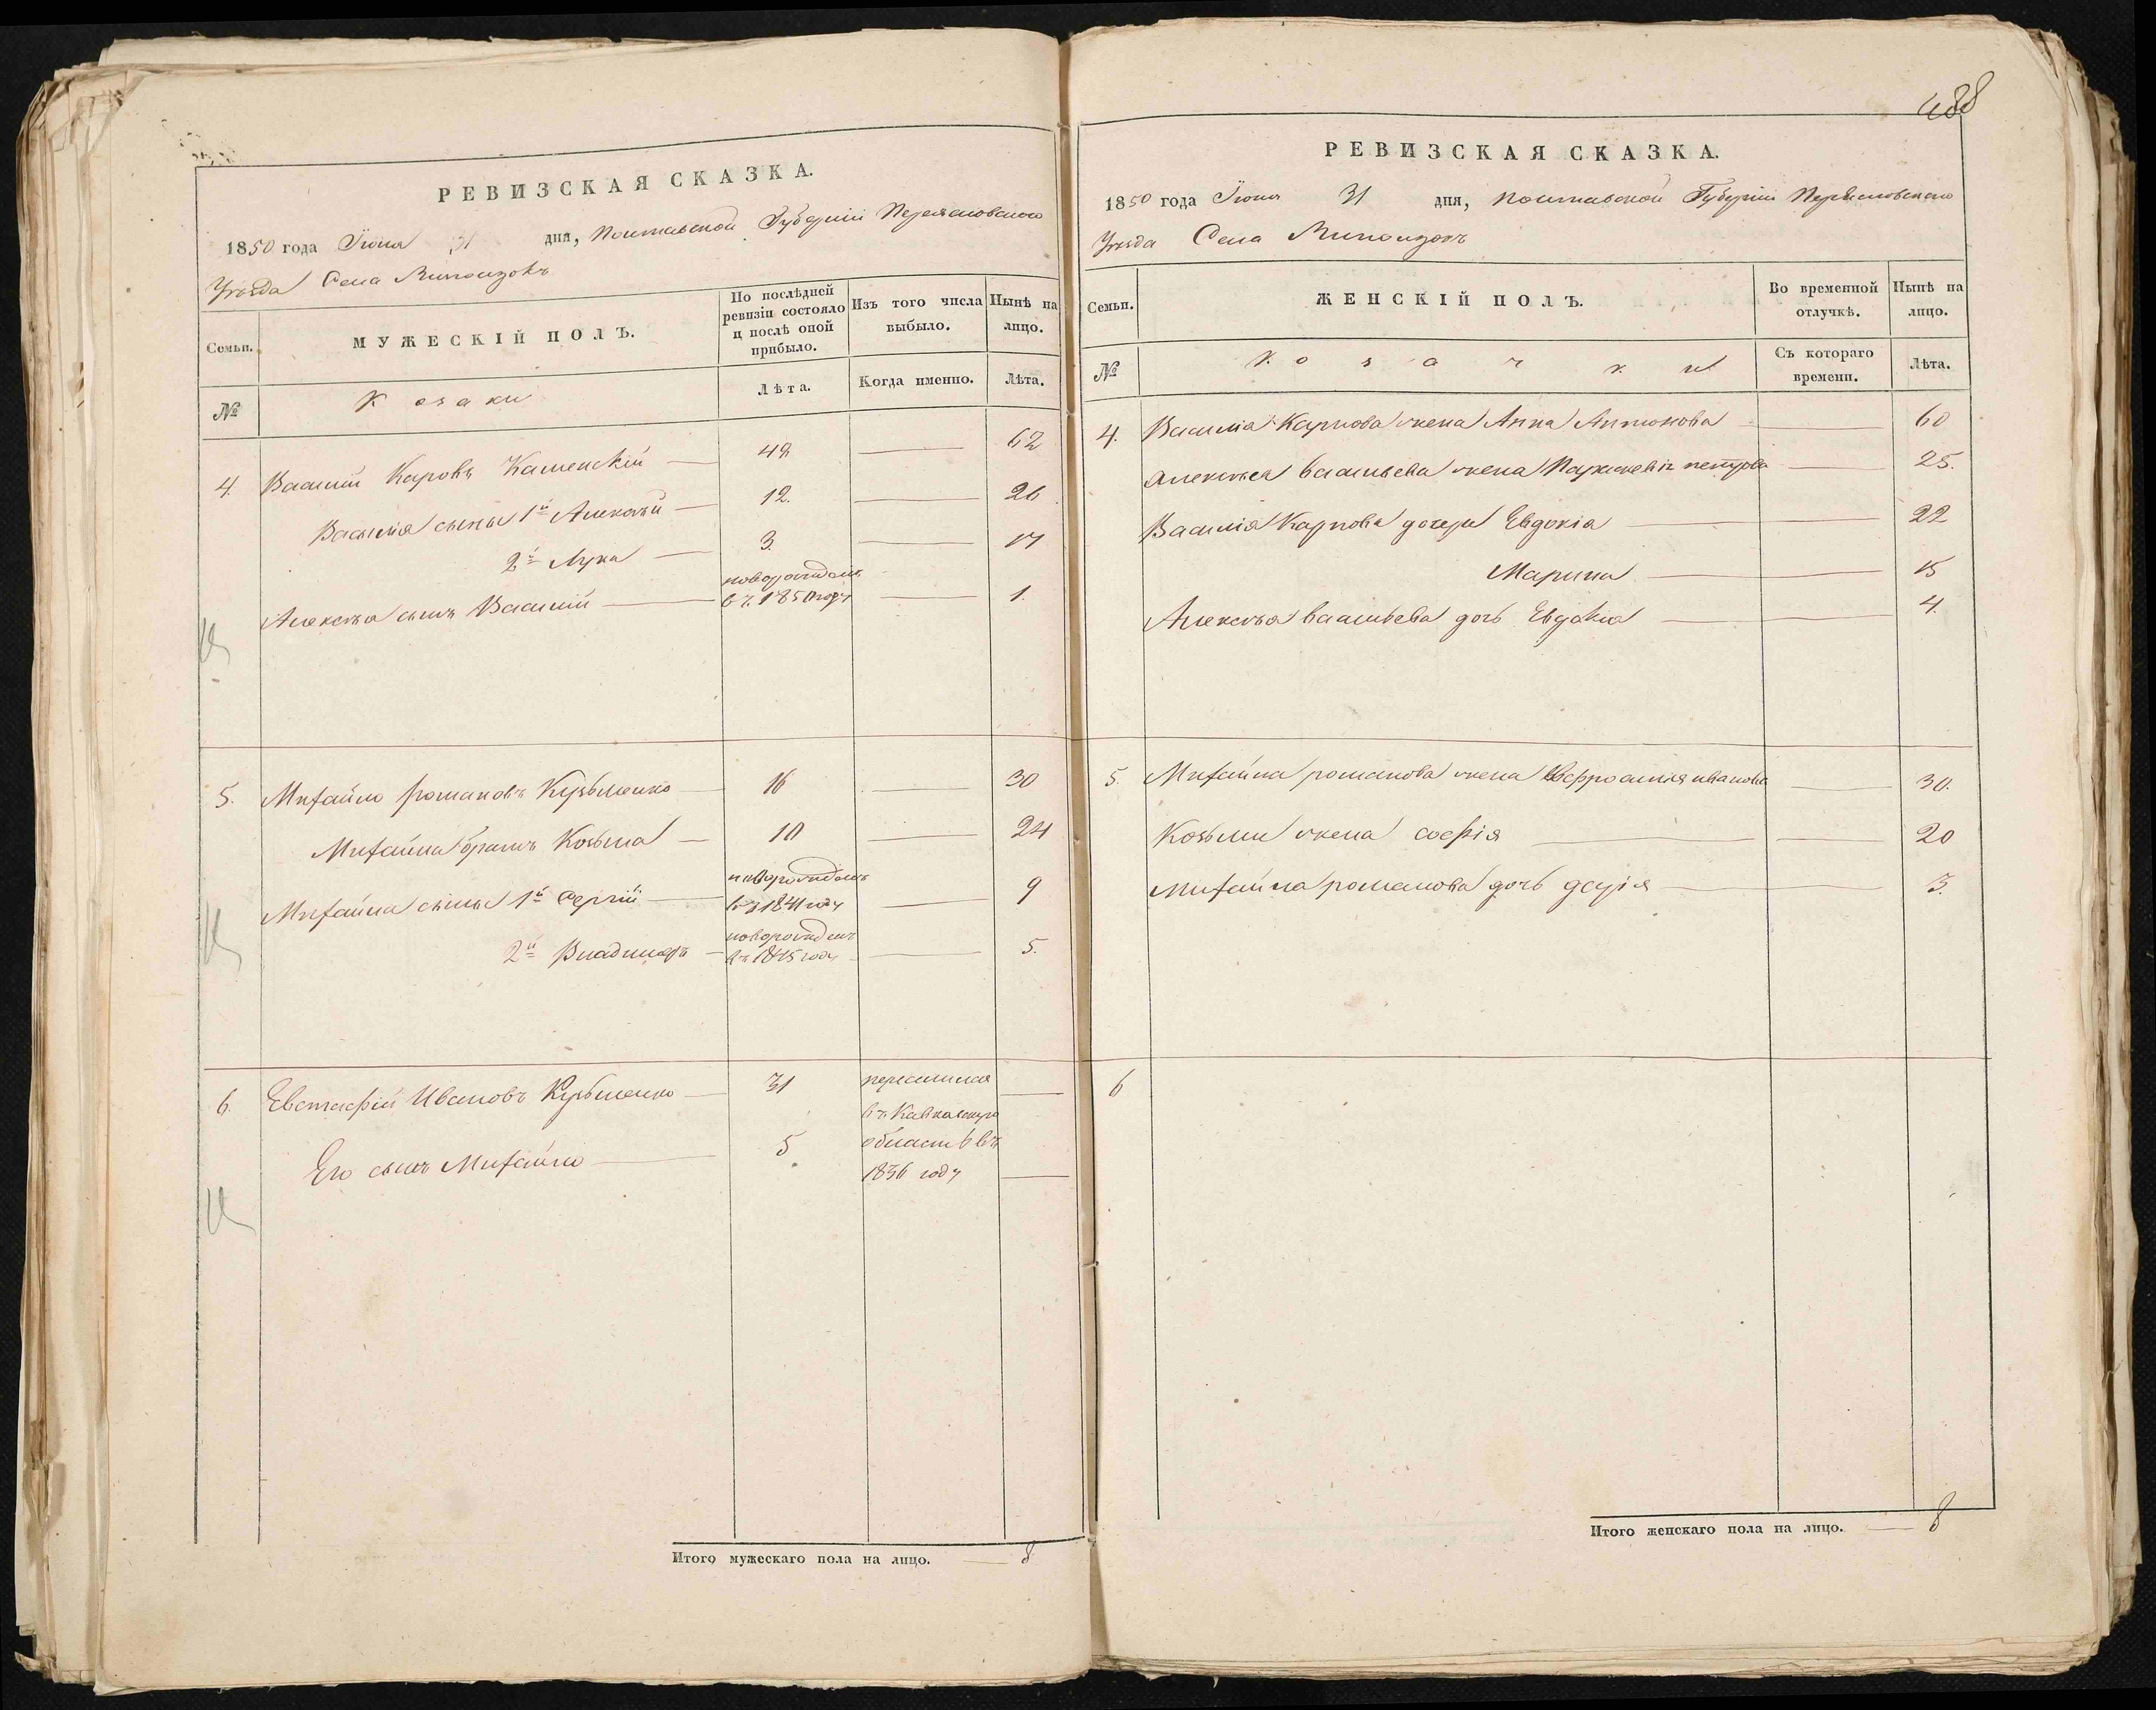 488
РЕВИЗСКАЯ СКАЗКА.
1850 года Іюня 31 дня, Полтавской Губерніи Переясловского
Уезда Села Липлязокъ
Семьи.
МУЖЕСКІЙ ПОЛЪ.
По послѣдней ревизіи состояло и послѣ оной прибыло.
Изъ того числа выбыло.
Нынѣ на лицо.
№
Козаки
Лѣта.
Когда именно.
Лѣта.
4. Василій Каровъ Каменскій — 48 — 62
Василія сыны 1й Алексѣй — 12. — 26
2й Лука — 3. — 17
Алексѣя сынъ Василій — новорожденъ — 1.
въ 1850 году
5. Михайло романовъ Кузьменко — 16 — 30
Михайла братъ Козьма — 10 — 24
Михайла сыны 1й Сергій — новорожденъ — 9
въ 1841 году
2й Владимиръ — новорожденъ — 5.
въ 1845 году
6. Евстафій Ивановъ Кузьменко — 31 переселился —
въ Кавказкую
Его сынъ Михайло — 5 область въ
1836 году —
Итого мужескаго пола на лицо. — 8
РЕВИЗСКАЯ СКАЗКА.
1850 года Іюня 31 дня, Полтавской Губерніи Переясловского
Уезда Села Липлязокъ
Семьи.
ЖЕНСКІЙ ПОЛЪ.
Во временной отлучкѣ.
Нынѣ на лицо.
№
Козачки
Съ котораго времени.
Лѣта.
4. Василія Карпова жена Анна Антонова — 60
Алексѣя васильева жена петрова — 25.
Василія Карпова дочери Евдокія — 22
Марина — 15
Алексѣя васильева дочь Евдокія — 4.
5. Михайла романова жена Евфросинія иванова — 30.
Козьми жена софія — 20
Михайла романова дочь дарія — 3.
6
Итого женскаго пола на лицо. — 8